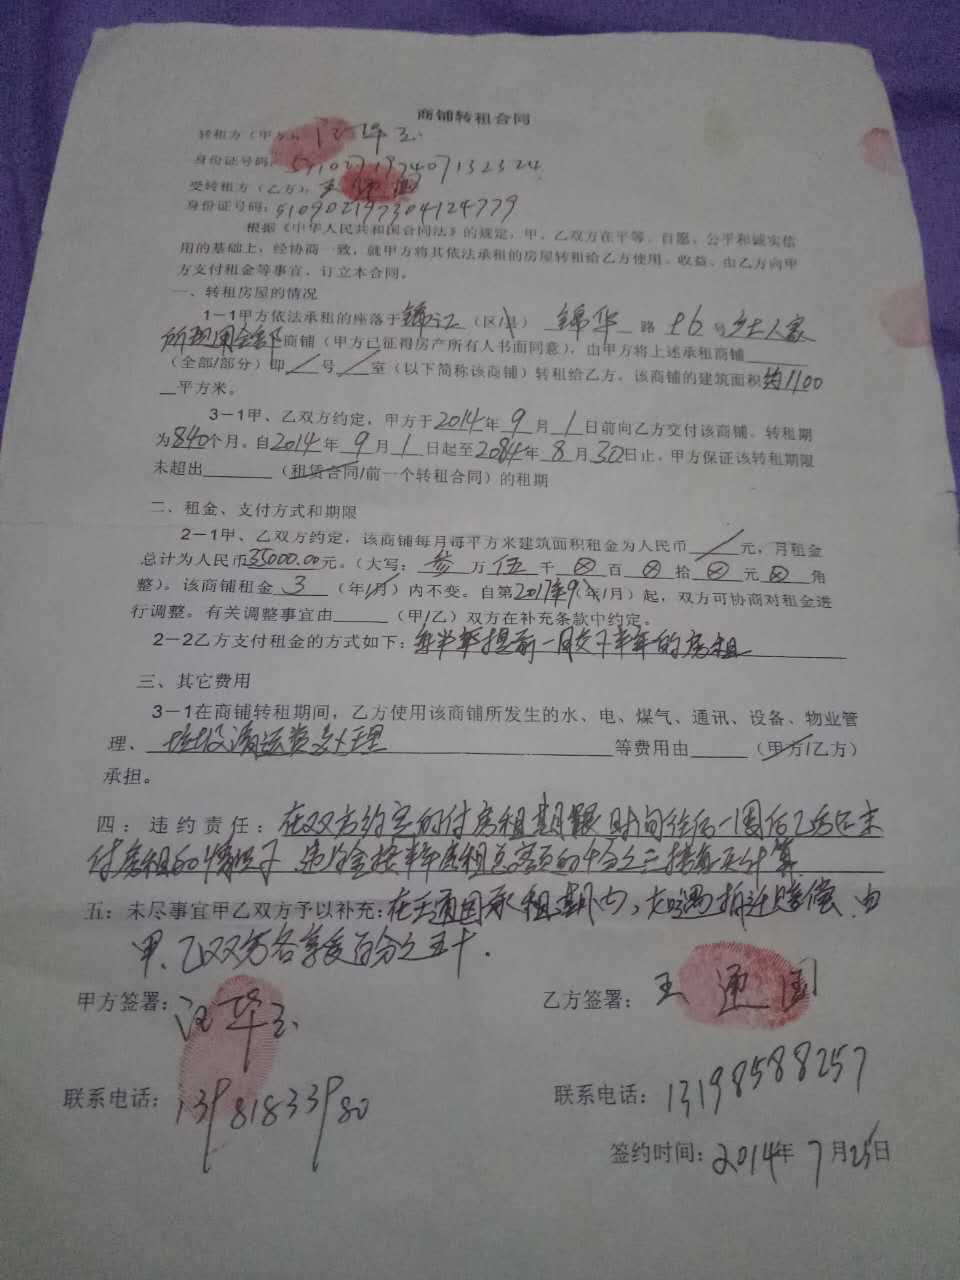 商铺转租合同
转租方（甲方）：汪华玉
身份证号码：
受转租方（乙方）：王通国
身份证号码：510902197304124779
根据《中华人民共和国合同法》的规定，甲、乙双方在平等、自愿、公平和诚实信
用的基础上，经协商一致，就甲方将其依法承租的房屋转租给乙方使用、收益、由乙方向甲
方支付租金等事宜，订立本合同。
一、转租房屋的情况
1－1甲方依法承租的座落于锦江（区/县）锦华路 号乡土人家
所现用全部商铺（甲方已征得房产所有人书面同意），由甲方将上述承租商铺
（全部/部分）即／号／室（以下简称该商铺）转租给乙方。该商铺的建筑面积约1100
平方米。
3－1甲、乙双方约定，甲方于2014年9月1日前向乙方交付该商铺。转租期
为840个月。自2014年9月1日起至2084年8月30日止。甲方保证该转租期限
未超出（租赁合同/前一个转租合同）的租期
二、租金、支付方式和期限
2－1甲、乙双方约定，该商铺每月每平方米建筑面积租金为人民币／元，月租金
总计为人民币35000.00元。（大写：叁万伍千⊗百⊗拾⊗元⊗角
整）。该商铺租金3（年/月）内不变。自第2017年9（年/月）起，双方可协商对租金进
行调整。有关调整事宜由（甲/乙）双方在补充条款中约定。
2－2乙方支付租金的方式如下：每半年提前一月交下半年的房租
三、其它费用
3－1在商铺转租期间，乙方使用该商铺所发生的水、电、煤气、通讯、设备、物业管
理、垃圾清运费 处理等费用由（甲方/乙方）
承担。
四：违约责任：在双方约定的付房租期限时间往后一周后乙方还未
付房租的情况下，违约金按半年房租总额的 分之三按每天计算
五：未尽事宜甲乙双方予以补充：在王通国承租期内，如遇拆迁赔偿，由
甲、乙双方各享受百分之五十．
甲方签署：汪华玉
乙方签署：王通国
联系电话：13981833980
联系电话：13198588257
签约时间：2014年7月25日